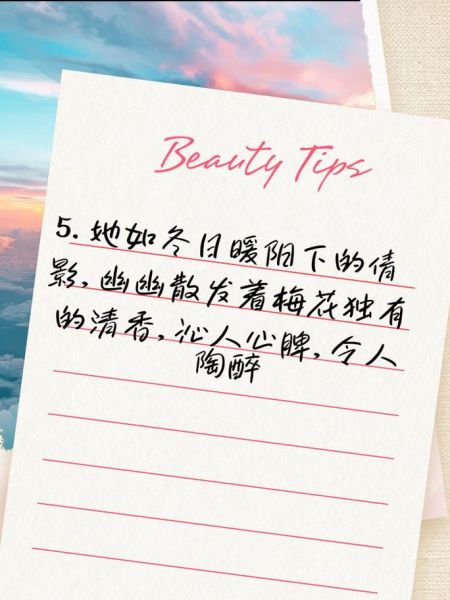 Beauty Tips
5. 她如冬日暖阳下的倩
影,幽幽散发着梅花独有
的清香,沁人心脾,令人
陶醉